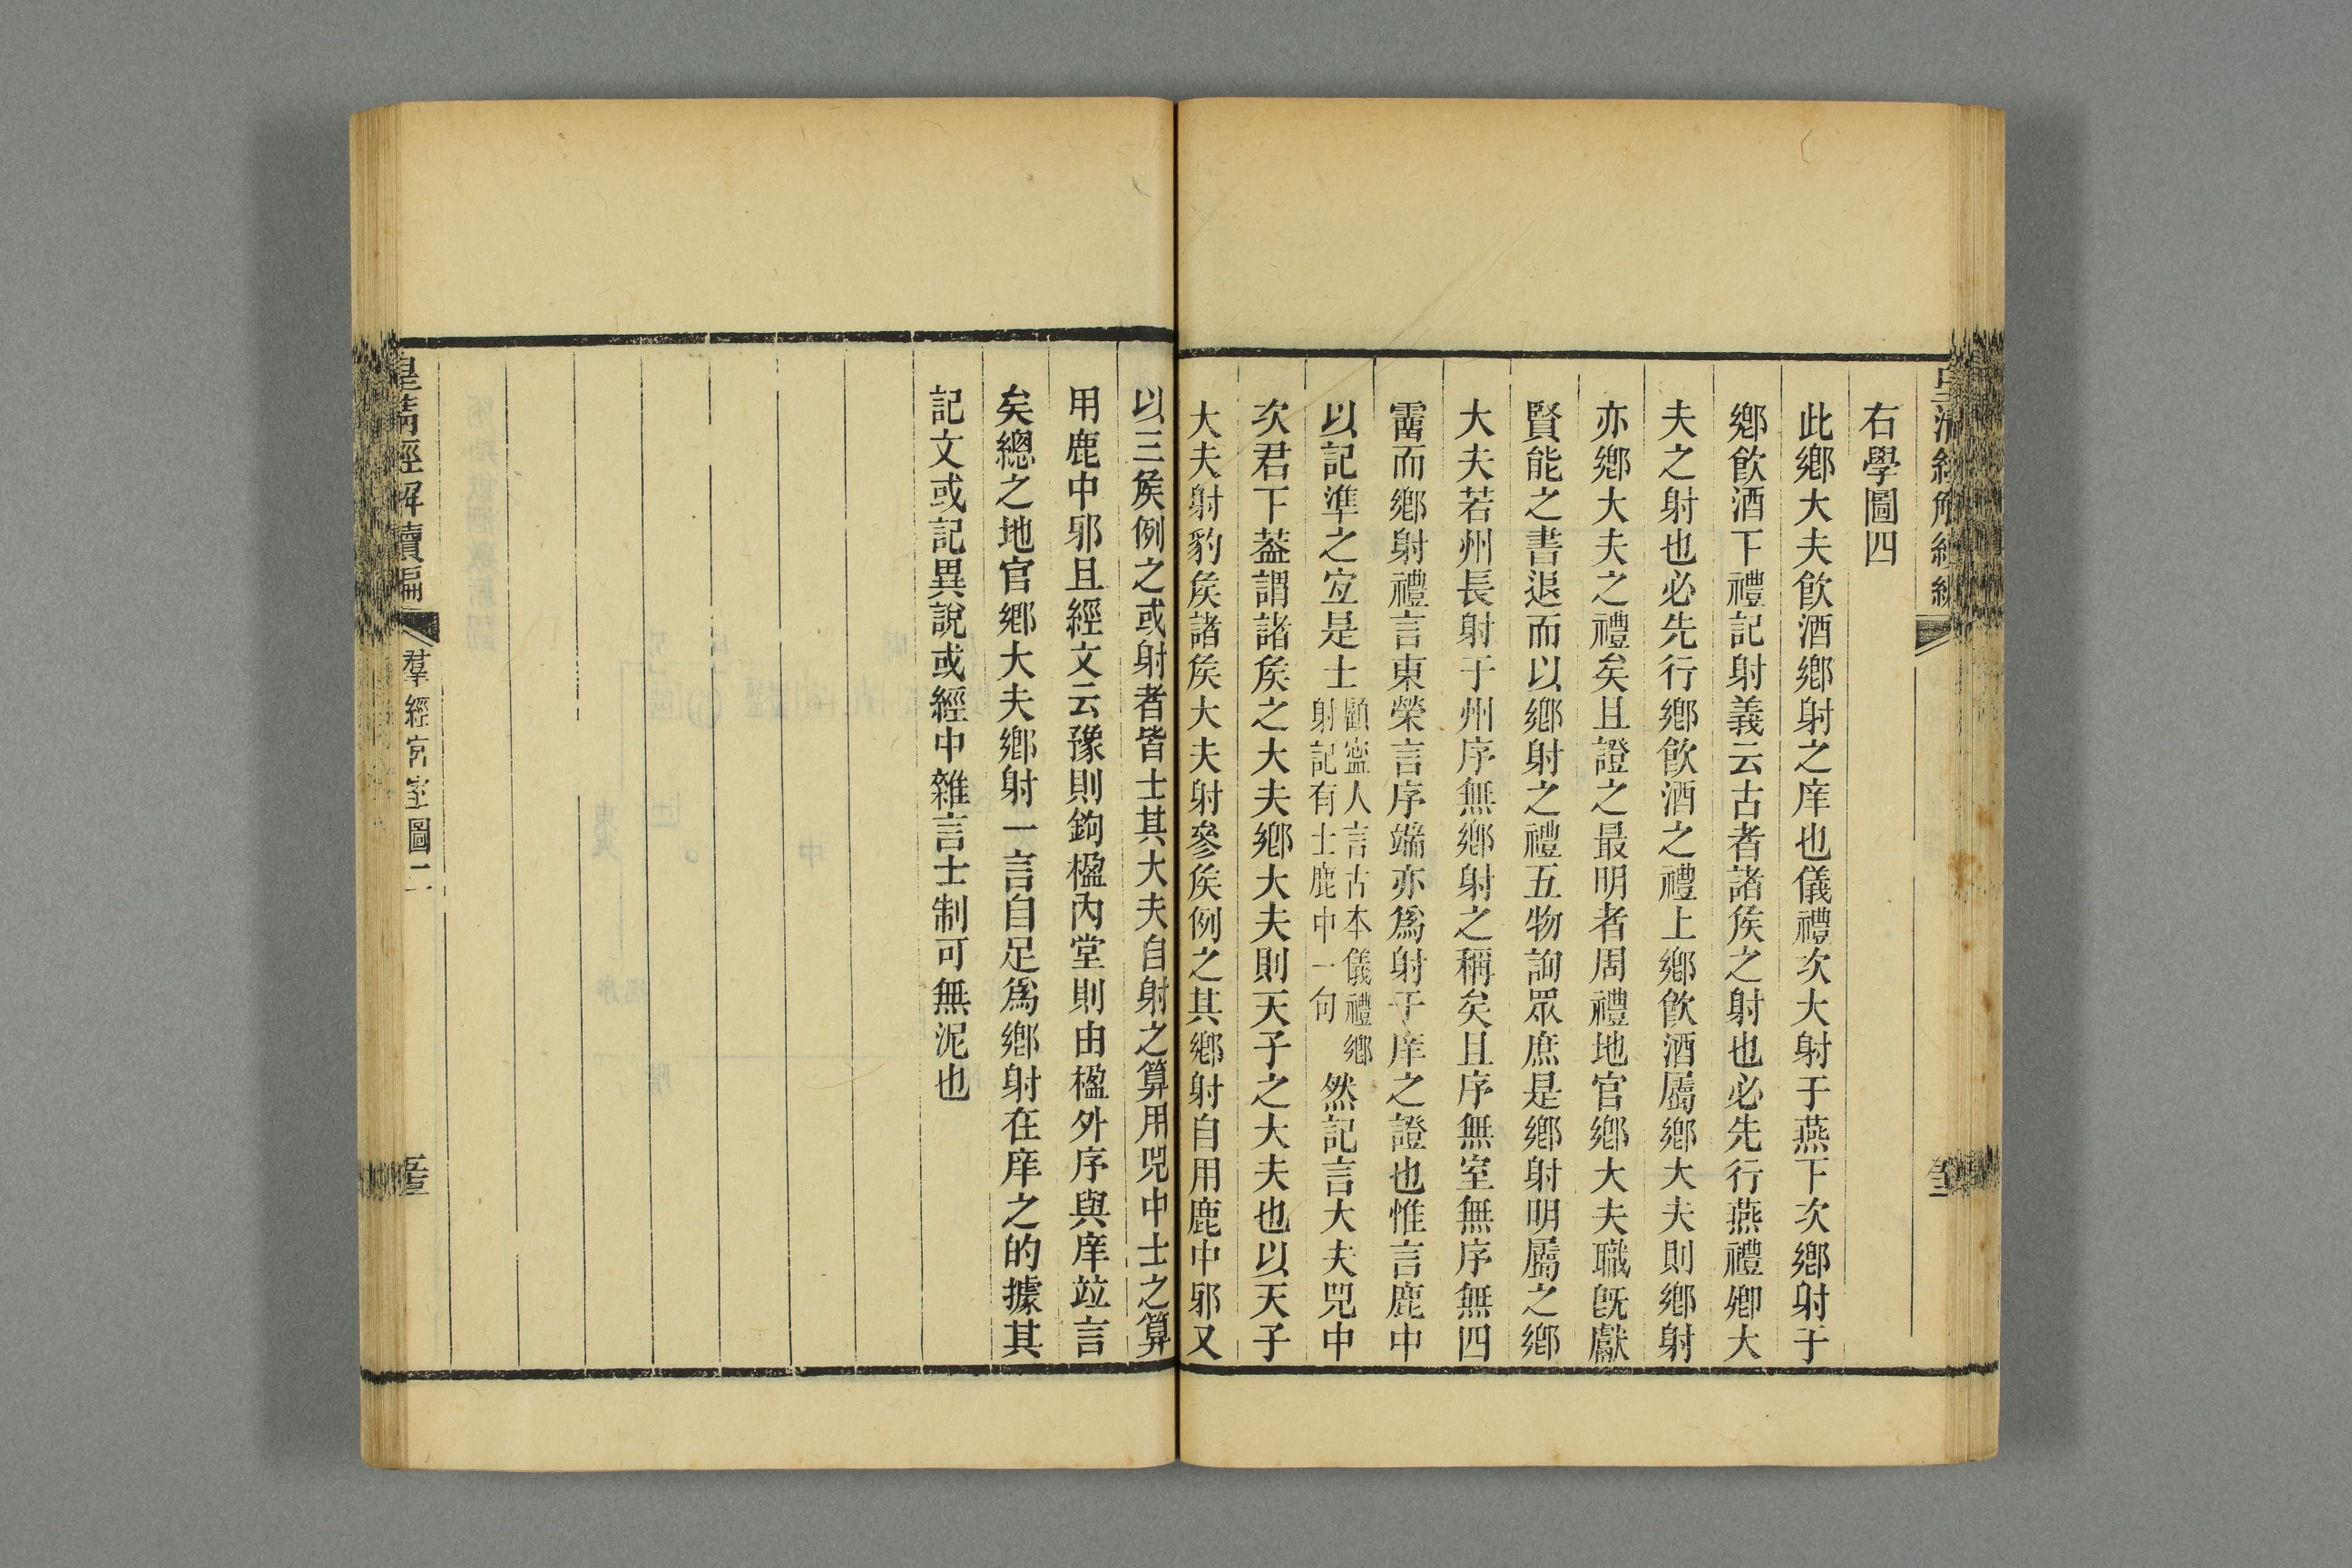 右學圖四
此鄉大夫飮酒鄉射之庠也儀禮次大射于燕下次鄉射于
鄉飮酒下禮記射義云古者諸矦之射也必先行燕禮卿大
夫之射也必先行鄉飮酒之禮上鄉飮酒屬鄉大夫則鄉射
亦鄉大夫之禮矣且證之最明者周禮地官鄉大夫職旣獻
賢能之書退而以鄉射之禮五物詢眾庶是鄉射明屬之鄉
大夫若州長射于州序無鄉射之稱矣且序無室無序無四
霤而鄉射禮言東榮言序端亦爲射于庠之證也惟言鹿中
以記準之宐是士
顧寍人言古本儀禮鄉
射記有士鹿中一句
然記言大夫兕中
次君下葢謂諸矦之大夫鄉大夫則天子之大夫也以天子
大夫射豹矦諸矦大夫射參矦例之其鄉射自用鹿中邪又
以三矦例之或射者皆士其大夫自射之算用兕中士之算
用鹿中邪且經文云豫則鉤楹內堂則由楹外序與庠竝言
矣總之地官鄉大夫鄉射一言自足爲鄉射在庠之的據其
記文或記異說或經中雜言士制可無泥也
皇清經解續編
羣經宮室圖二